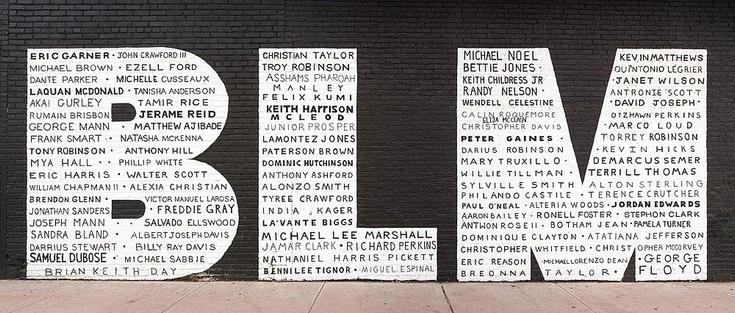 BLM
ERIC GARNER · JOHN CRAWFORD III
MICHAEL BROWN · EZELL FORD
DANTE PARKER · MICHELLE CUSSEAUX
LAQUAN MCDONALD · TANISHA ANDERSON
AKAI GURLEY · TAMIR RICE
RUMAIN BRISBON · JERAME REID
GEORGE MANN · MATTHEW AJIBADE
FRANK SMART · NATASHA MCKENNA
TONY ROBINSON · ANTHONY HILL
MYA HALL · PHILLIP WHITE
ERIC HARRIS · WALTER SCOTT
WILLIAM CHAPMAN II · ALEXIA CHRISTIAN
BRENDON GLENN · VICTOR MANUEL LAROSA
JONATHAN SANDERS · FREDDIE GRAY
JOSEPH MANN · SALVADO ELLSWOOD
SANDRA BLAND · ALBERT JOSEPH DAVIS
DARRIUS STEWART · BILLY RAY DAVIS
SAMUEL DUBOSE · MICHAEL SABBIE
BRIAN KEITH DAY
CHRISTIAN TAYLOR
TROY ROBINSON
ASSHAMS PHAROAH
MANLEY
FELIX KUMI
KEITH HARRISON
MCLEOD
JUNIOR PROSPER
LAMONTEZ JONES
PATERSON BROWN
DOMINIC HUTCHINSON
ANTHONY ASHFORD
ALONZO SMITH
TYREE CRAWFORD
INDIA KAGER
LA'VANTE BIGGS
MICHAEL LEE MARSHALL
JAMAR CLARK · RICHARD PERKINS
NATHANIEL HARRIS PICKETT
BENNI LEE TIGNOR · MIGUEL ESPINAL
MICHAEL NOEL · KEVIN MATTHEWS
BETTIE JONES · QUINTONIO LEGRIER
KEITH CHILDRESS JR · JANET WILSON
RANDY NELSON · ANTRONIE SCOTT
WENDELL CELESTINE · DAVID JOSEPH ·
CALIN ROQUEMORE · DYZHAWN PERKINS
ELIJA MCCLAIN
CHRISTOPHER DAVIS · MARCO LOUD
PETER GAINES · TORREY ROBINSON
DARIUS ROBINSON · KEVIN HICKS
MARY TRUXILLO · DEMARCUS SEMER
WILLIE TILLMAN · TERRILL THOMAS
SYLVILLE SMITH · ALTON STERLING
PHILANDO CASTILE · TERENCE CRUTCHER
PAUL O'NEAL · ALTERIA WOODS · JORDAN EDWARDS
AARON BAILEY · RONELL FOSTER · STEPHON CLARK
ANTWON ROSE II · BOTHAM JEAN · PAMELA TURNER
DOMINIQUE CLAYTON · ATATIANA JEFFERSON
CHRISTOPHER WHITFIELD · CHRISTOPHER MCCORVEY
ERIC REASON · MICHAEL LORENZO DEAN · GEORGE
BREONNA TAYLOR · FLOYD